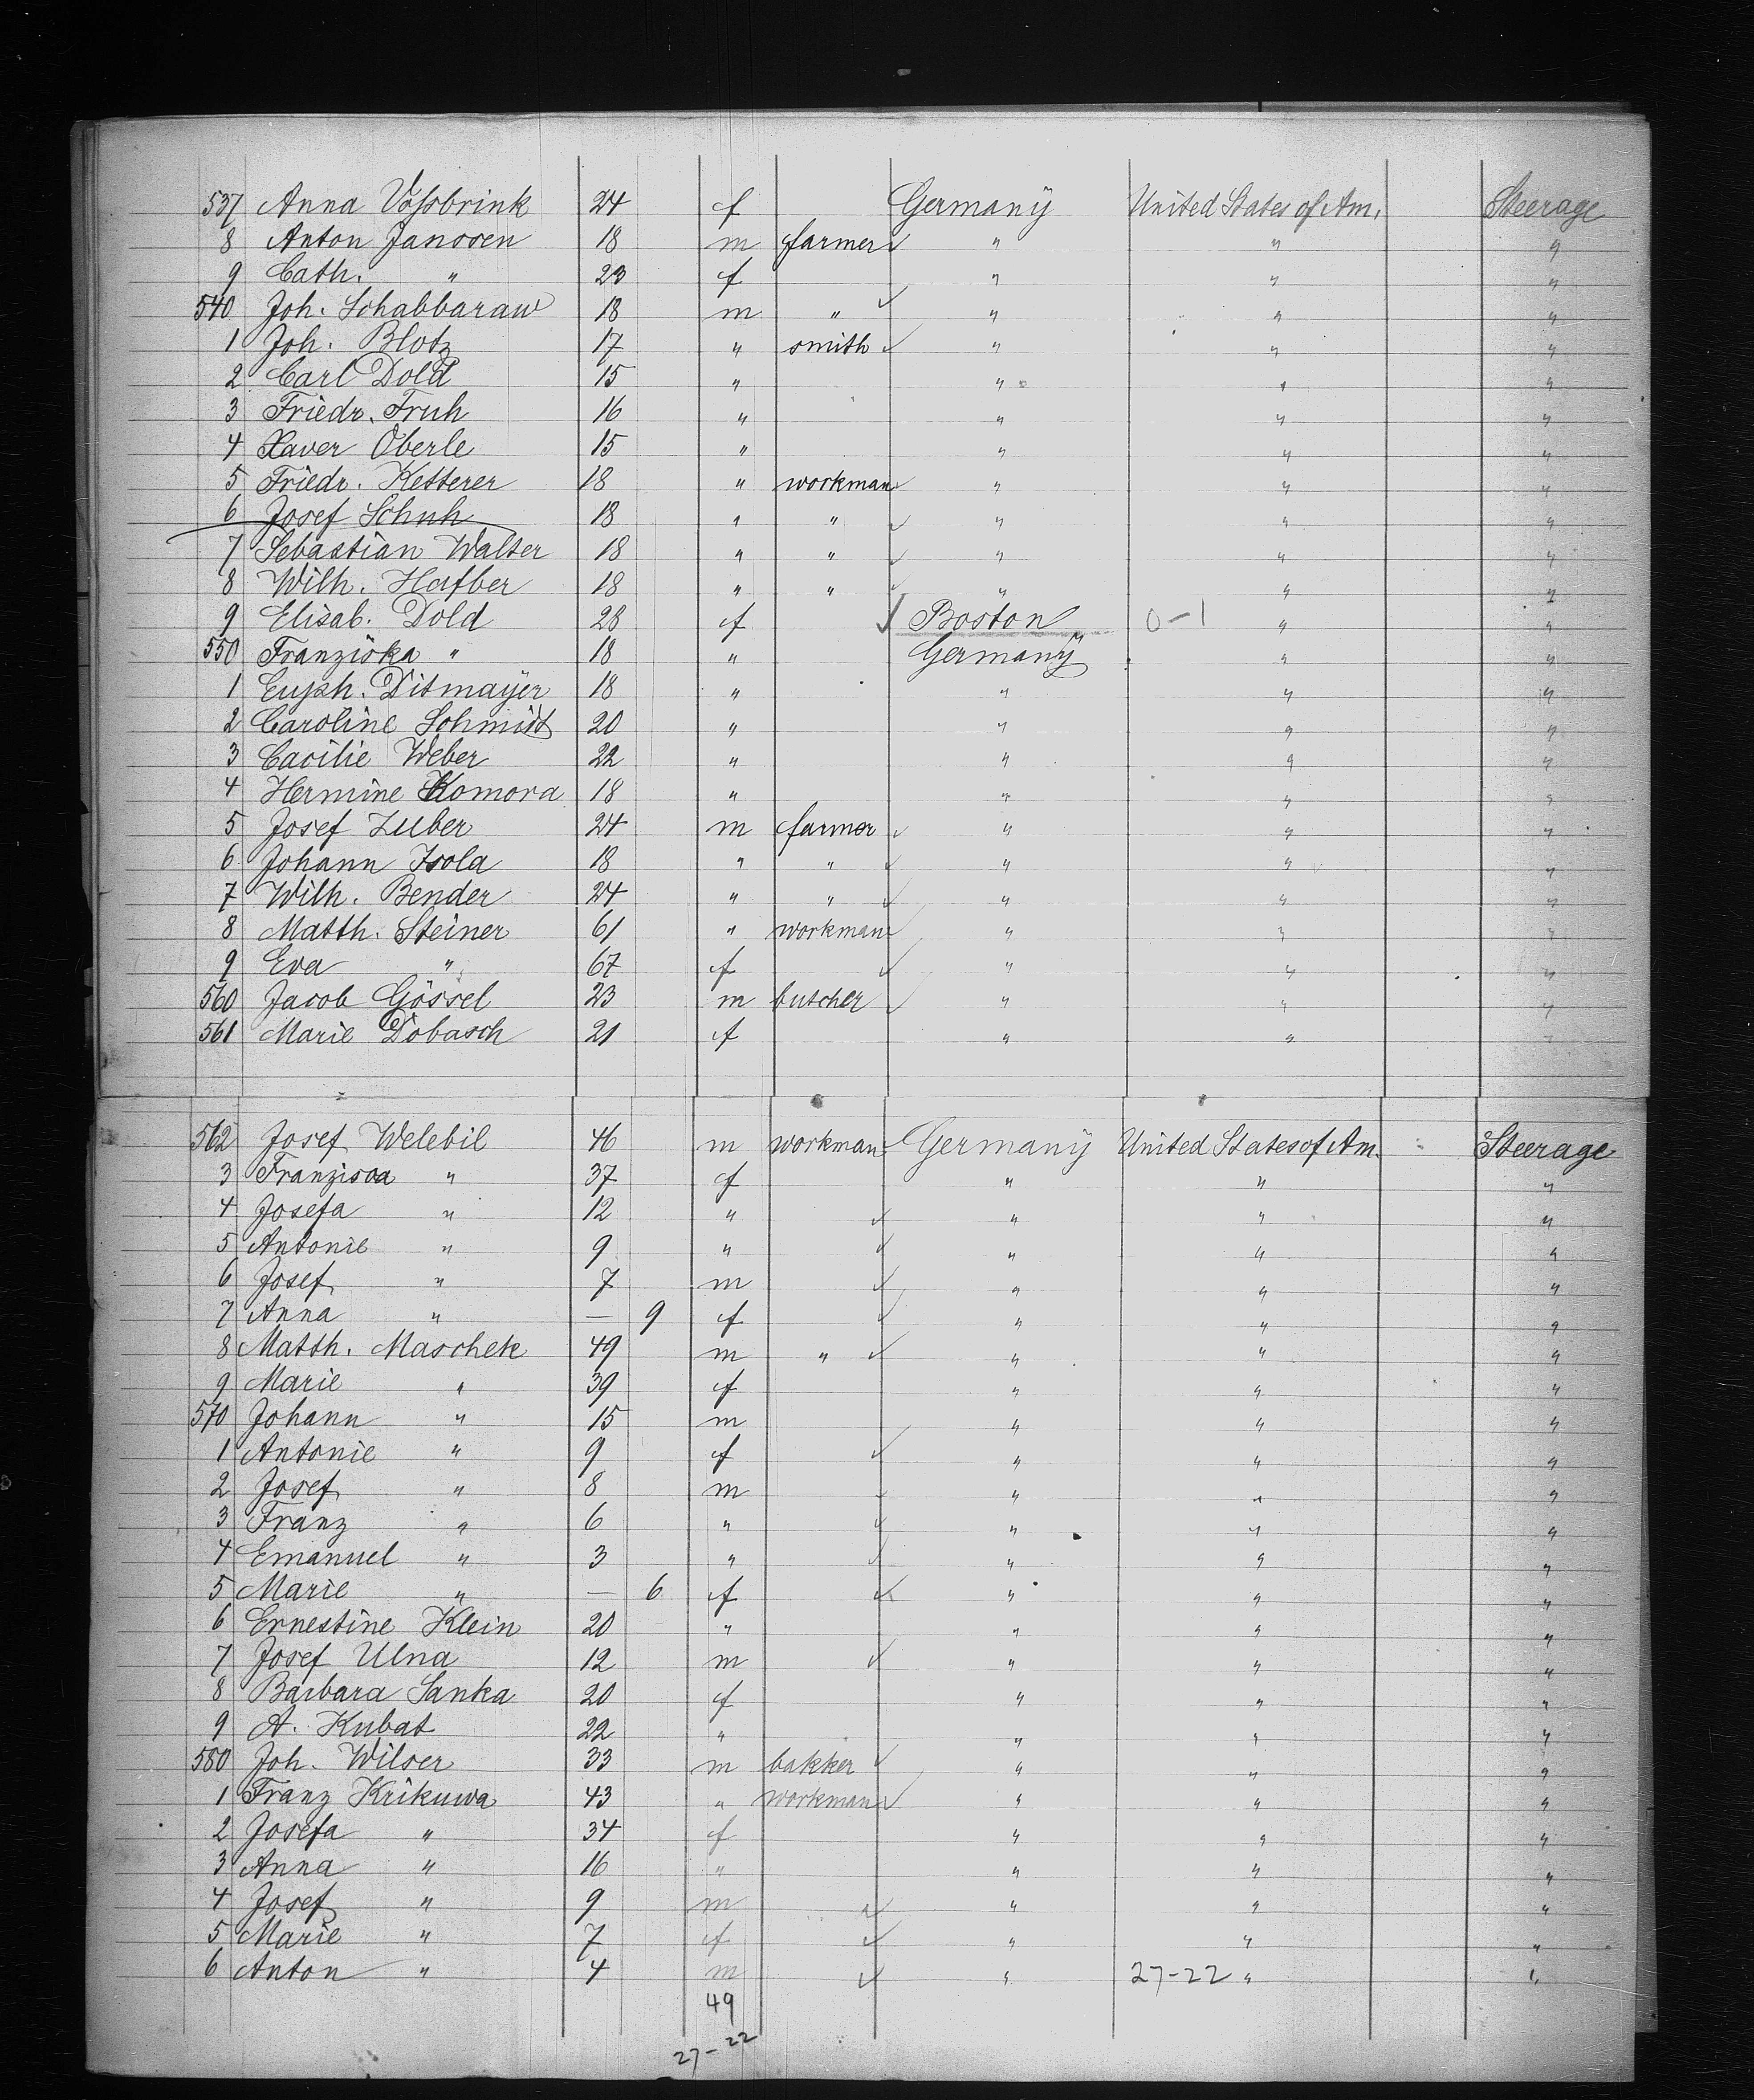 537 Anna Vossbrink 24 f Germany United States of Am. Steerage
8 Anton Janssen 18 m farmer " " "
9 Cath. " 23 f " " "
540 Joh. Schabbaraw 18 m " " " "
1 Joh. Blotz 17 " smith " " "
2 Carl Dold 15 " " " "
3 Friedr. Fruh 16 " " " "
4 Xaver Oberle 15 " " " "
5 Friedr. Ketterer 18 " workman " " "
6 Josef Schuh 18 " " " " "
7 Sebastian Walter 18 " " " " "
8 Wilh. Hafber 18 " " " " "
9 Elisab. Dold 28 f Boston 0-1 " "
550 Franziska " 18 " Germany " "
1 Euph. Ditmayer 18 " " " "
2 Caroline Schmidt 20 " " " "
3 Cacilie Weber 22 " " " "
4 Hermine Komora 18 " " " "
5 Josef Zuber 24 m farmer " " "
6 Johann Isola 18 " " " " "
7 Wilh. Bender 24 " " " " "
8 Matth. Steiner 61 " workman " " "
9 Eva " 67 f " " "
560 Jacob Gössel 23 m butcher " " "
561 Marie Dobasch 21 f " " "
562 Josef Welebil 46 m workman Germany United States of Am. Steerage
3 Franzisca " 37 f " " "
4 Josefa " 12 " " " "
5 Antonie " 9 " " " "
6 Josef " 7 m " " "
7 Anna " — 9 f " " "
8 Matth. Maschek 49 m " " " "
9 Marie " 39 f " " "
570 Johann " 15 m " " "
1 Antonie " 9 f " " "
2 Josef " 8 m " " "
3 Franz " 6 " " " "
4 Emanuel " 3 " " " "
5 Marie " — 6 f " " "
6 Ernestine Klein 20 " " " "
7 Josef Ulna 12 m " " "
8 Barbara Sanka 20 f " " "
9 A. Kubat 22 " " " "
580 Joh. Wilser 33 m bakker " " "
1 Franz Krikuwa 43 " workman " " "
2 Josefa " 34 f " " "
3 Anna " 16 " " " "
4 Josef " 9 m " " "
5 Marie " 7 f " " "
6 Anton " 4 m " 27-22 " "
49
27-22